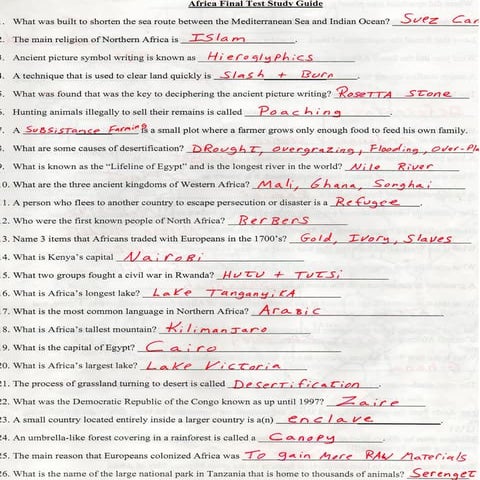 Africa Final Test Study Guide
1. What was built to shorten the sea route between the Mediterranean Sea and Indian Ocean? Suez Can
2. The main religion of Northern Africa is Islam.
3. Ancient picture symbol writing is known as Hieroglyphics
4. A technique that is used to clear land quickly is Slash + Burn.
5. What was found that was the key to deciphering the ancient picture writing? Rosetta Stone
6. Hunting animals illegally to sell their remains is called Poaching.
7. A Subsistance Farming is a small plot where a farmer grows only enough food to feed his own family.
8. What are some causes of desertification? Drought, overgrazing, Flooding, over-Pla
9. What is known as the "Lifeline of Egypt" and is the longest river in the world? Nile River
10. What are the three ancient kingdoms of Western Africa? Mali, Ghana, Songhai
11. A person who flees to another country to escape persecution or disaster is a Refugee.
12. Who were the first known people of North Africa? Berbers
13. Name 3 items that Africans traded with Europeans in the 1700's? Gold, Ivory, Slaves
14. What is Kenya's capital Nairobi
15. What two groups fought a civil war in Rwanda? Hutu + Tutsi
16. What is Africa's longest lake? Lake Tanganyika
17. What is the most common language in Northern Africa? Arabic
18. What is Africa's tallest mountain? Kilimanjaro
19. What is the capital of Egypt? Cairo
20. What is Africa's largest lake? Lake Victoria
21. The process of grassland turning to desert is called Desertification.
22. What was the Democratic Republic of the Congo known as up until 1997? Zaire
23. A small country located entirely inside a larger country is a(n) enclave.
24. An umbrella-like forest covering in a rainforest is called a Canopy.
25. The main reason that Europeans colonized Africa was To gain More Raw Materials
26. What is the name of the large national park in Tanzania that is home to thousands of animals? Serenget